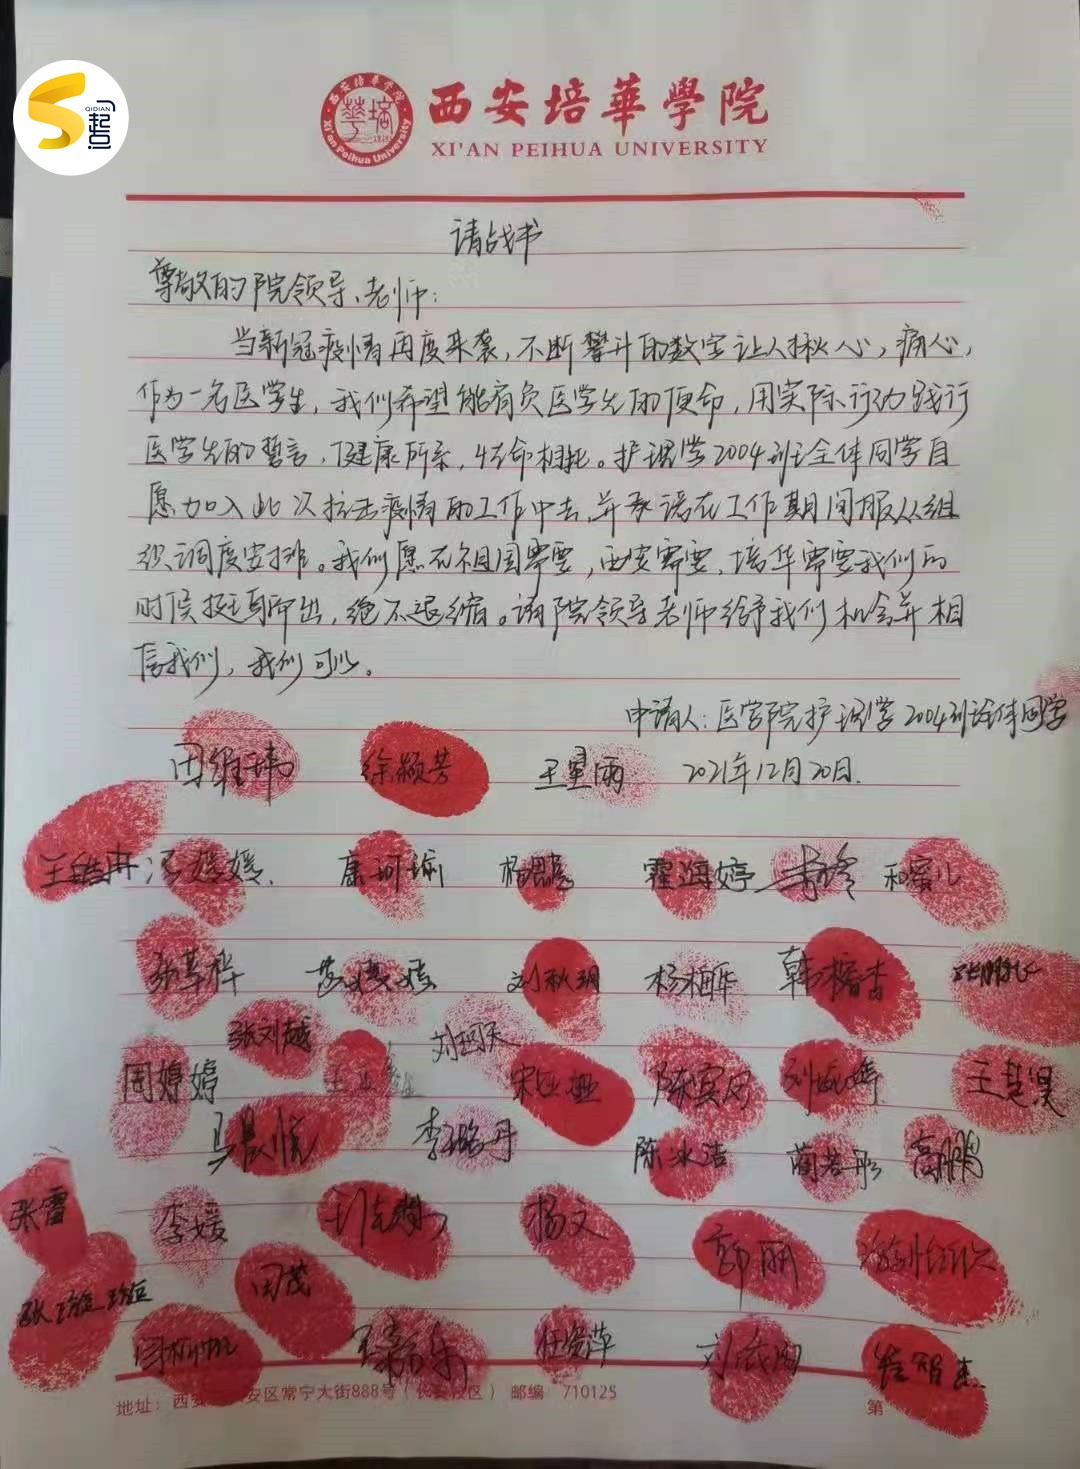 起点
QIDIAN
西安培華學院
XI'AN PEIHUA UNIVERSITY
西安培华学院
Xi'an Peihua University
请战书
尊敬的院领导、老师：
当新冠疫情再度来袭，不断攀升的数字让人揪心，痛心，
作为一名医学生，我们希望能肩负医学生的使命，用实际行动践行
医学生的誓言，健康所系，性命相托。护理学2004班全体同学自
愿加入此次抗击疫情的工作中去，并承诺在工作期间服从组
织调度安排。我们愿在祖国需要，西安需要，培华需要我们的
时候挺身而出，绝不退缩。请院领导老师给予我们机会并相
信我们，我们可以。
申请人：医学院护理学2004班全体同学
田维玮 徐颖芳 王星雨 2021年12月20日.
冯媛媛. 康珂瑜 霍海婷
刘秋玥 杨柏华 韩椿杏
张刘越
周婷婷 陈寅凤 刘婉婷 王楚淇
马晨悦 李璐丹 陈冰洁 蔺若彤 高鹏
张雷 李媛 杨文 郭丽
田茂
任資萍
地址：西安 安区常宁大街888号（长安校区） 邮编 710125 第